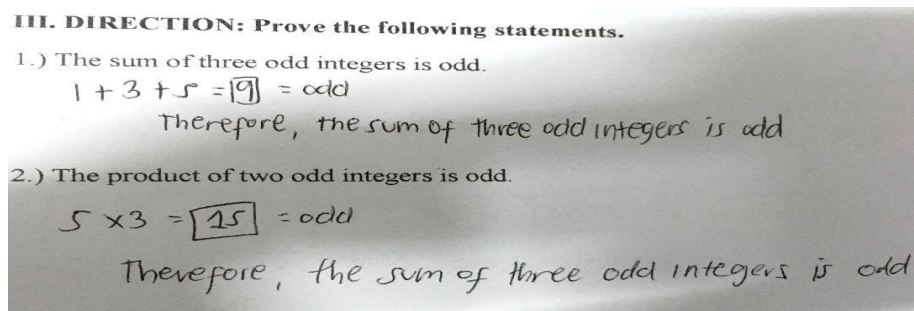 III. DIRECTION: Prove the following statements.
1.) The sum of three odd integers is odd.
1 + 3 + 5 = 9 = odd
Therefore, the sum of three odd integers is odd
2.) The product of two odd integers is odd.
5 x 3 = 15 = odd
Therefore, the sum of three odd integers is odd